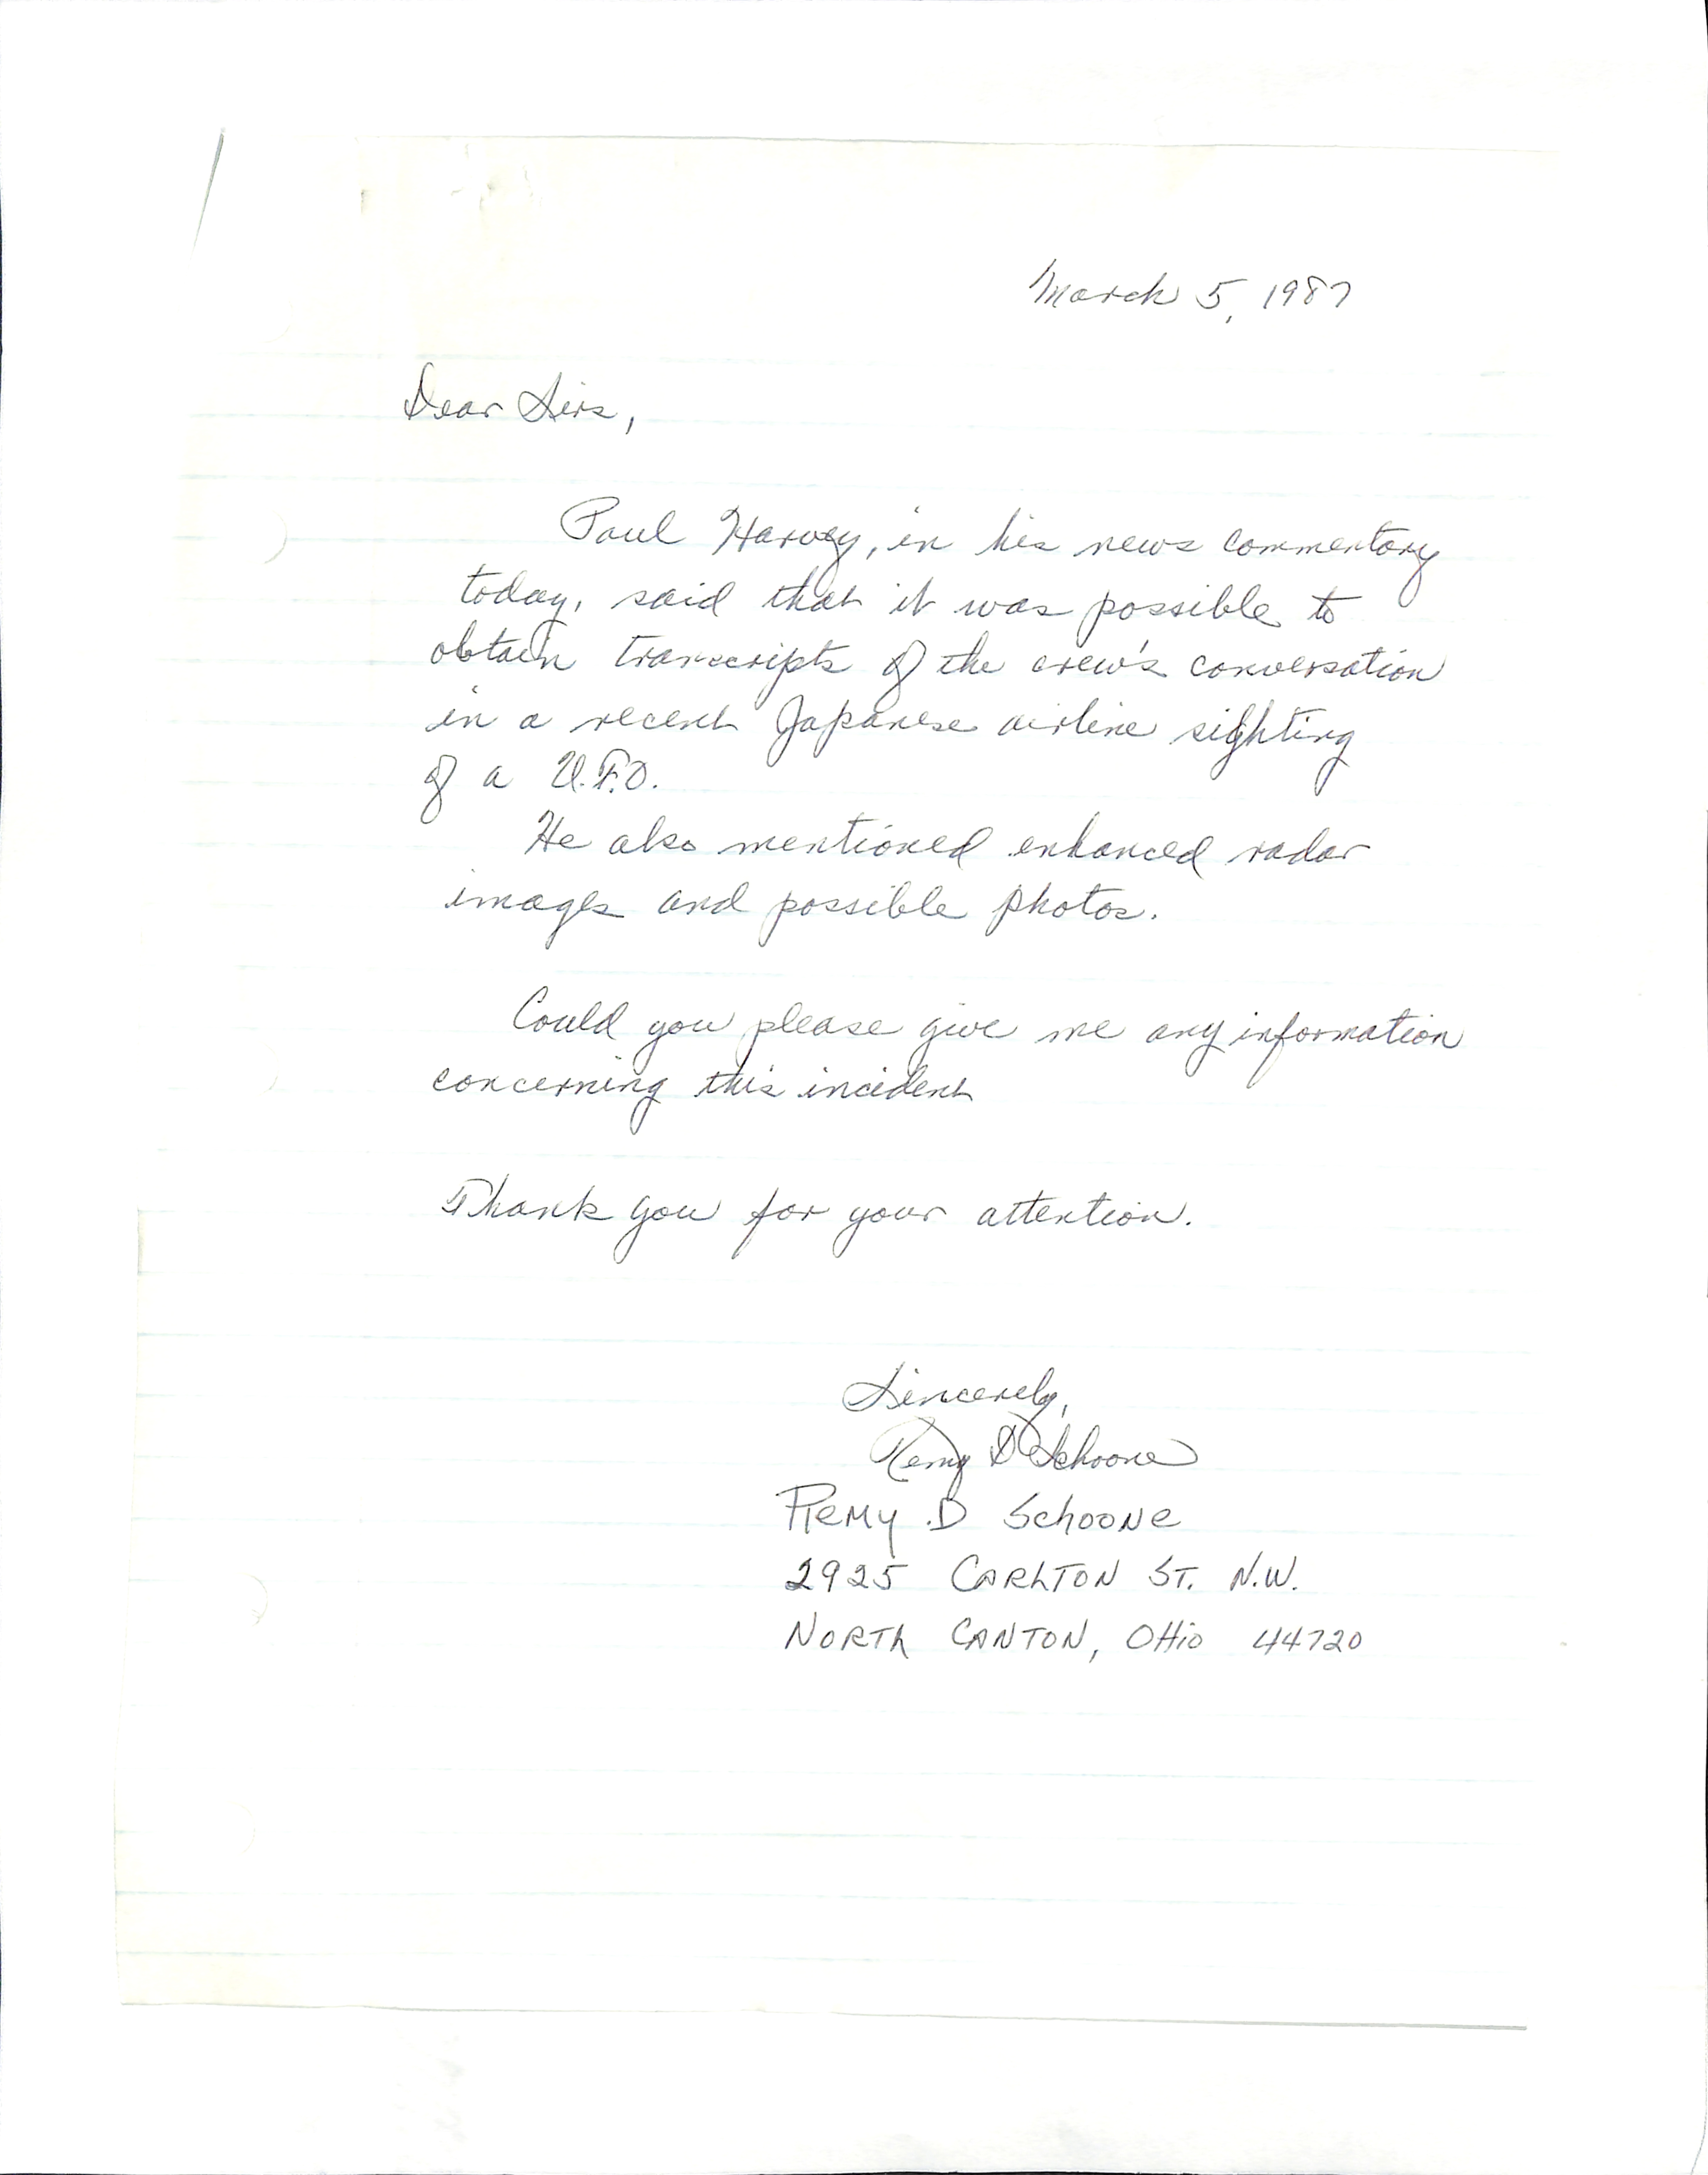 March 5, 1987
Dear Sirs,
Paul Harvey, in his news commentary
today, said that it was possible to
obtain transcripts of the crew's conversation
in a recent Japanese airline sighting
of a U.F.O.
He also mentioned enhanced radar
images and possible photos.
Could you please give me any information
concerning this incident
Thank you for your attention.
Sincerely,
Remy D Schoone
Remy D Schoone
2925 Carlton St. N.W.
North Canton, Ohio 44720